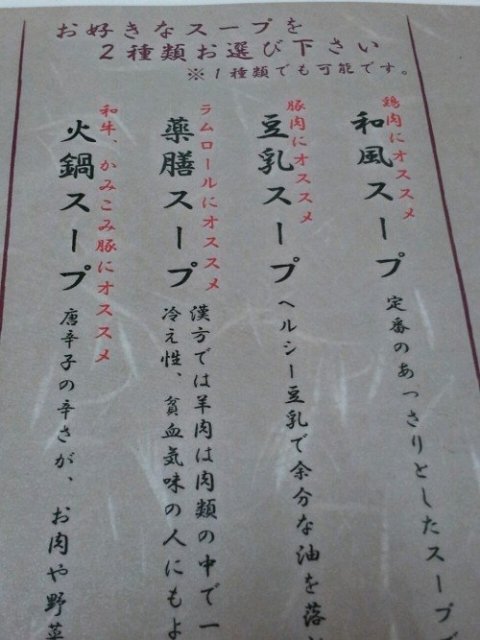 お好きなスープを
2種類お選び下さい
※1種類でも可能です。
鶏肉にオススメ
和風スープ
定番のあっさりとしたスープ
豚肉にオススメ
豆乳スープ
ヘルシー豆乳で余分な油を落
ラムロールにオススメ
薬膳スープ
漢方では羊肉は肉類の中で一
冷え性、貧血気味の人にもよ
和牛、かみこみ豚にオススメ
火鍋スープ
唐辛子の辛さが、お肉や野菜